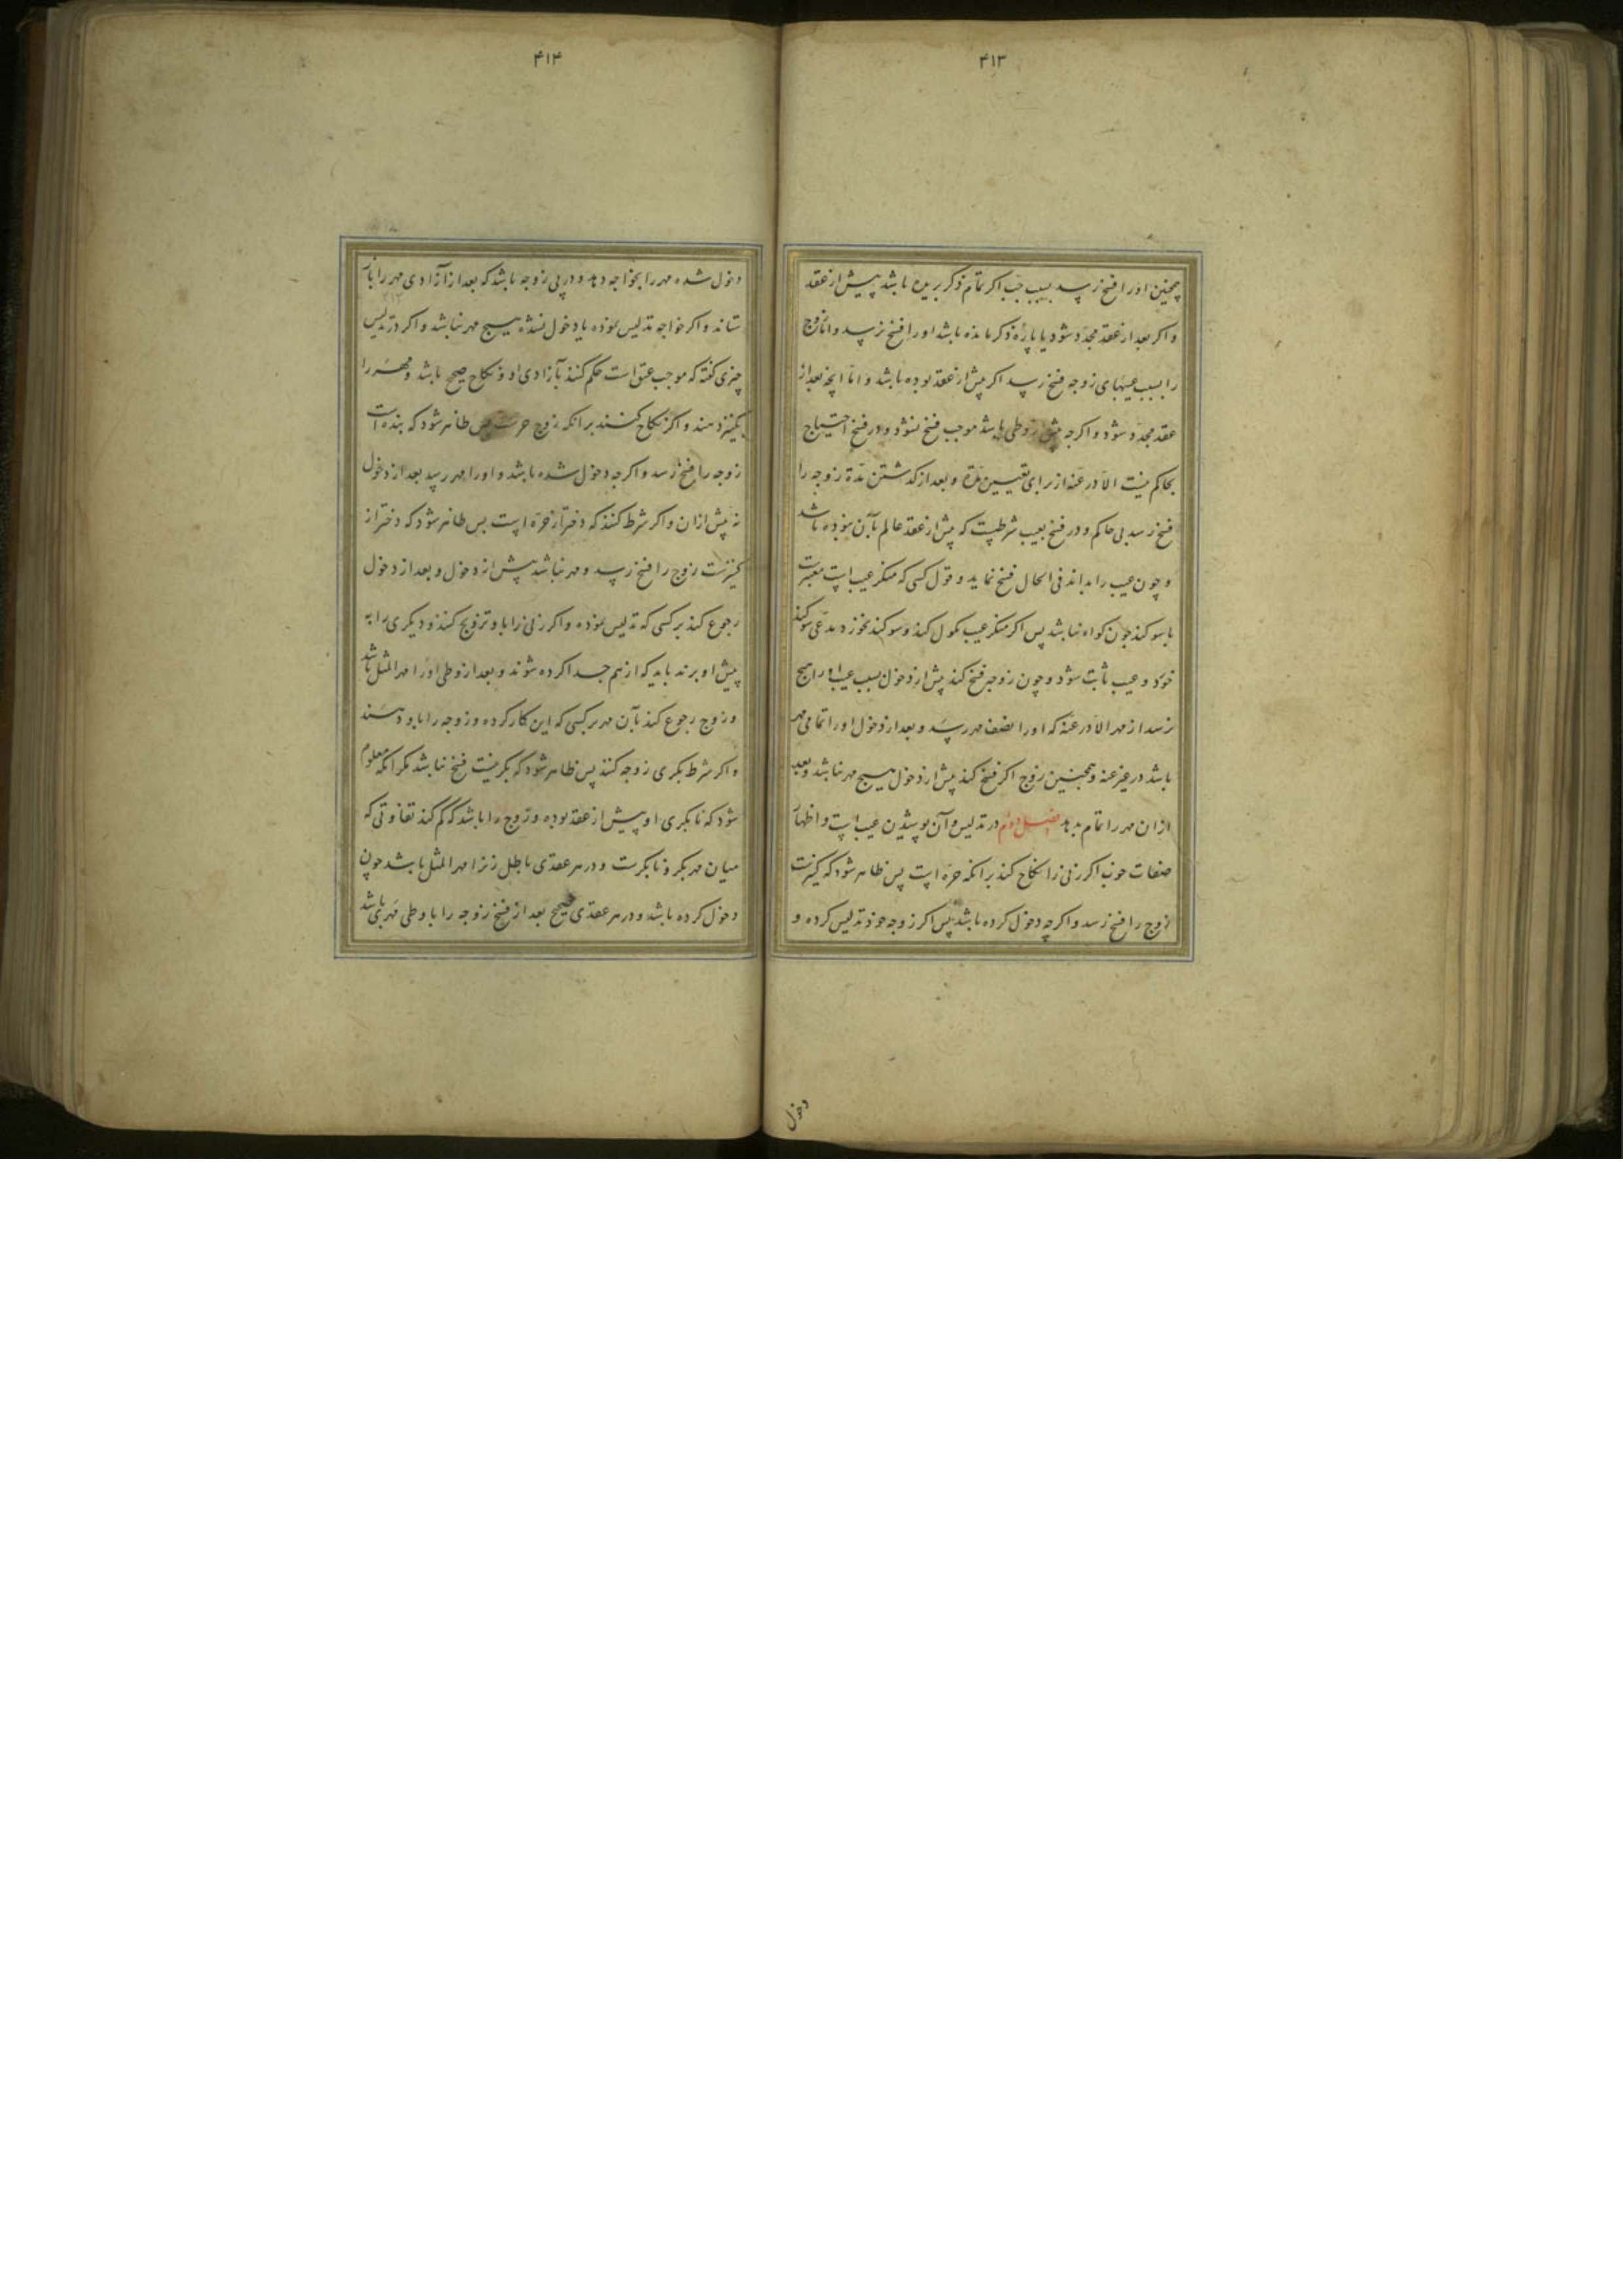 ۴۱۳
همچنین او را فسخ رسد بسبب جب اکر تمام ذکر بریده باشد پیش از عقد
و اکر بعد از عقد مجدد شود یا پاره ذکر مانده باشد او را فسخ نرسد و اما زوج
را بسبب عیبهای زوجه فسخ رسد اکر پیش از عقد بوده باشد و اما انچه بعد از
عقد مجدد شود و اکرچه پیش از وطی باشد موجب فسخ نشود و در فسخ احتیاج
بحاکم نیست الا در عنه از برای تعیین مدة و بعد از کذشتن مدة زوجه را
فسخ رسد بی حاکم و در فسخ بعیب شرطست که پیش از عقد عالم بآن نبوده باشد
و چون عیب را بداند فی الحال فسخ نماید و قول کسی که منکر عیب است معتبرست
با سوکند چون کواه نباشد پس اکر منکر عیب نکول کند و سوکند نخورد مدعی سوکند
خورد و عیب ثابت شود و چون زوجه فسخ کند پیش از دخول بسبب عیب او را هیچ
نرسد از مهر الا در عنه که او را نصف مهر رسد و بعد از دخول او را تمامی مهر
باشد در غیر عنه و همچنین زوج اکر فسخ کند پیش از دخول هیچ مهر نباشد و بعد
ازان مهر را تمام بدهد فصل دوم در تدلیس و آن پوشیدن عیب است و اظهار
صفات خوب اکر زنی را نکاح کند بر انکه حره است پس ظاهر شود که کنیزست
زوج را فسخ رسد و اکرچه دخول کرده باشد پس اکر زوجه خود تدلیس کرده و
دخول
۴۱۴
دخول شده مهر را بخواجه دهد و در پی زوجه باشد که بعد از آزادی مهر را باز
ستاند و اکر خواجه تدلیس نموده یا دخول نشده هیچ مهر نباشد و اکر در تدلیس
چیزی کفته که موجب عتق است حکم کنند بآزادی او و نکاح صحیح باشد و مهر را
بکنیز دهند و اکر نکاح کنند بر انکه زوج حرست پس ظاهر شود که بنده است
زوجه را فسخ رسد و اکرچه دخول شده باشد و او را مهر رسد بعد از دخول
نه پیش ازان و اکر شرط کنند که دختر از حره است پس ظاهر شود که دختر از
کنیزست زوج را فسخ رسد و مهر نباشد پیش از دخول و بعد از دخول
رجوع کند بر کسی که تدلیس نموده و اکر زنی را باو تزویج کنند و دیکری را به
پیش او برند باید که از هم جدا کرده شوند و بعد از وطی او را مهر المثل باشد
و زوج رجوع کند بآن مهر بر کسی که این کار کرده و زوجه را باو دهند
و اکر شرط بکری زوجه کنند پس ظاهر شود که بکر نیست فسخ نباشد مکر انکه معلوم
شود که نابکری او پیش از عقد بوده و زوج را باشد که کم کند تفاوتی که
میان مهر بکر و نابکرست و در هر عقدی باطل زن را مهر المثل باشد چون
دخول کرده باشد و در هر عقدی صحیح بعد از فسخ زوجه را با وطی مهری باشد